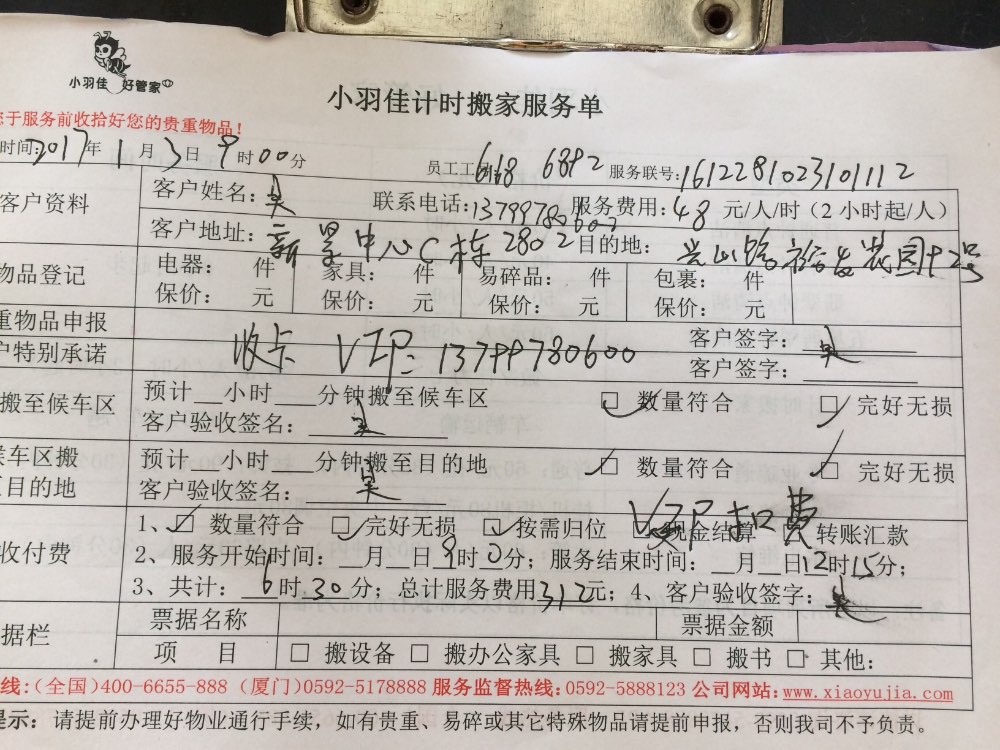 小羽佳 好管家
小羽佳计时搬家服务单
于服务前收拾好您的贵重物品!
时间:2017年1月3日9时00分
员工工 618 6892 服务联号:1612281023101112
客户资料
客户姓名:吴 联系电话:13799780600 服务费用:48元/人/时(2小时起/人)
客户地址:新景中心C栋2802 目的地:兴山路裕发花园十2号
物品登记
电器: 件 家具: 件 易碎品: 件 包裹: 件
保价: 元 保价: 元 保价: 元 保价: 元
重物品申报 客户签字:吴
户特别承诺 收卡 VIP:13799780600 客户签字:
搬至候车区
预计__小时____分钟搬至候车区 数量符合 完好无损
客户验收签名:吴
候车区搬
目的地
预计__小时____分钟搬至目的地 数量符合 完好无损
客户验收签名:吴
收付费
VIP扣费
1、数量符合 完好无损 按需归位 现金结算 转账汇款
2、服务开始时间:__月__日9时0分;服务结束时间:__月__日12时15分;
3、共计:6时30分;总计服务费用312元;4、客户验收签字:吴
据栏
票据名称 票据金额
项 目 □ 搬设备 □ 搬办公家具 □ 搬家具 □ 搬书 □ 其他:
线:(全国)400-6655-888 (厦门)0592-5178888 服务监督热线:0592-5888123 公司网站:www.xiaoyujia.com
提示: 请提前办理好物业通行手续,如有贵重、易碎或其它特殊物品请提前申报,否则我司不予负责。